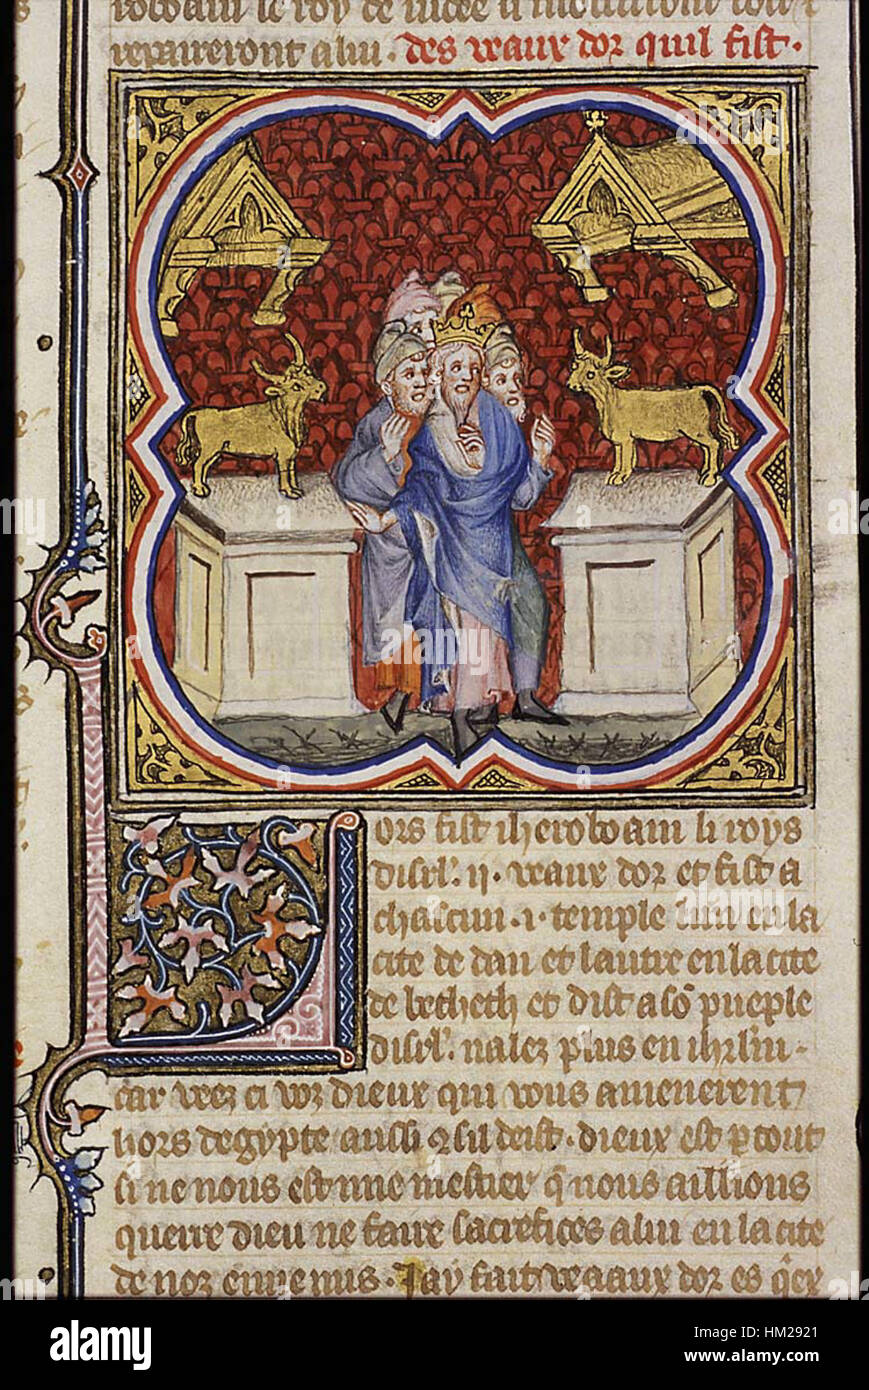 roboam le roy de iudee
repaireront a lui. des veaux dor quil fist.
ors fist iheroboam li roys
disrl'. ii. veaux dor et fist a
chascun .i. temple lun en la
cite de dan et lautre en la cite
de betheth et dist a sō pueple
disrl'. nalez plus en ihrl'm.
car veez ci voz dieux qui vous amenerent
hors degypte aussi q̄ sil deist. dieux est p̄ tout
si ne nous est nne mestier q̄ nous aillions
querre dieu ne faire sacrefices a lui en la cite
de noz ennemis. Jay fait veaux dor es q̄ex
alamy
Image ID: HM2921
www.alamy.com